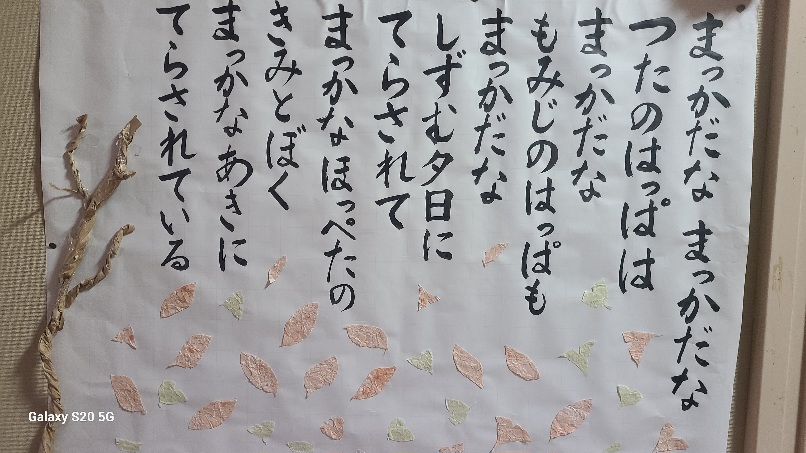 まっかだな まっかだな
つたのはっぱは
まっかだな
もみじのはっぱも
まっかだな
しずむ夕日に
てらされて
まっかなほっぺたの
きみとぼく
まっかなあきに
てらされている
Galaxy S20 5G